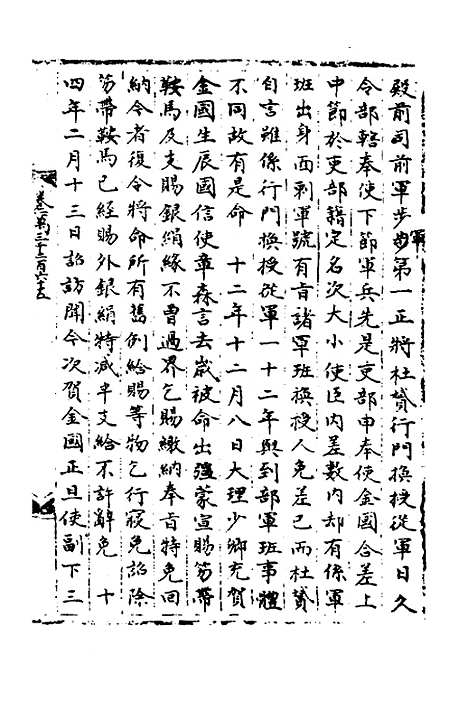 殿前司前軍步軍第一正將杜贇行門換授從軍日久
令部轄奉使下節軍兵先是吏部申奉使金國合差上
中節於吏部籍定名次大小使臣內差數內却有係軍
班出身面刺軍號有旨諸軍班換授人免差已而杜贇
自言雖係行門換授從軍一十二年與到部軍班事體
不同故有是命　十二年十二月八日大理少卿充賀
金國生辰國信使章森言去歲被命出疆蒙宣賜笏帶
鞍馬及支賜銀絹緣不曾過界乞賜繳納奉旨特免回
納今者復令將命所有舊例給賜等物乞行寢免詔除
笏帶鞍馬已經賜外銀絹特減半支給不許辭免　十
四年二月十三日詔訪聞今次賀金國正旦使副下三
卷一萬二千三百六十五